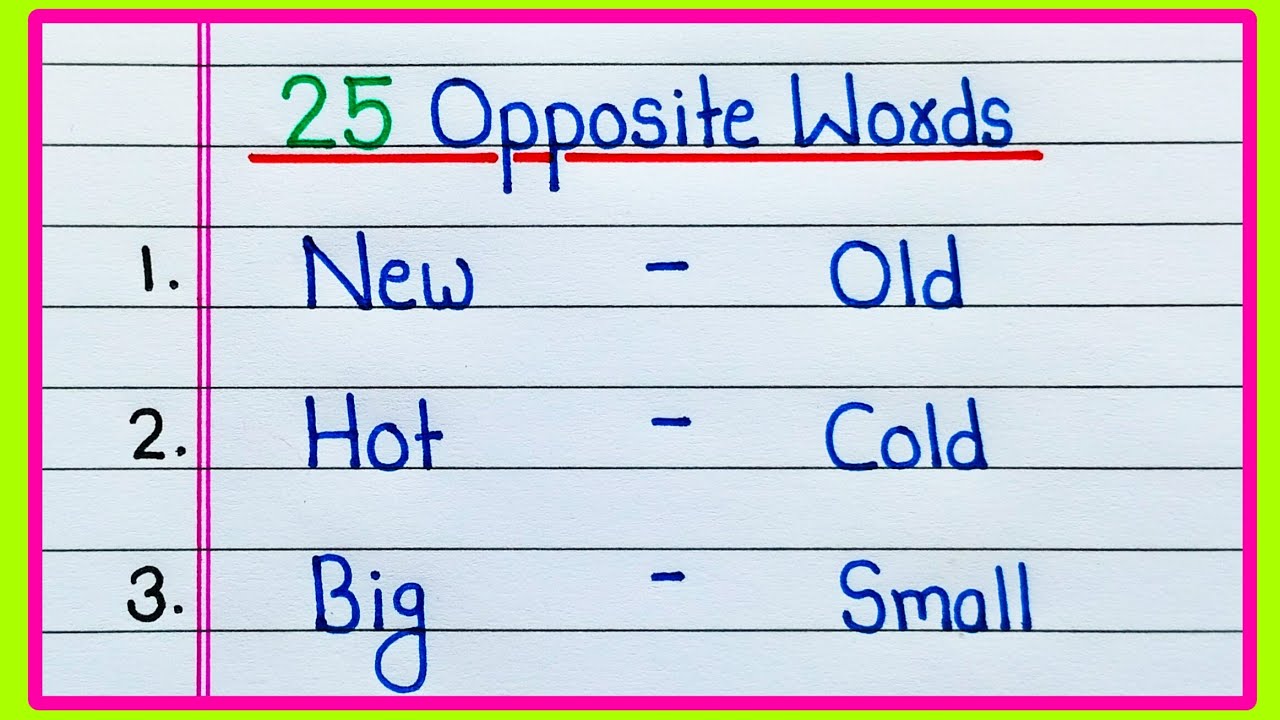 25 Opposite Words
1. New - Old
2. Hot - Cold
3. Big - Small